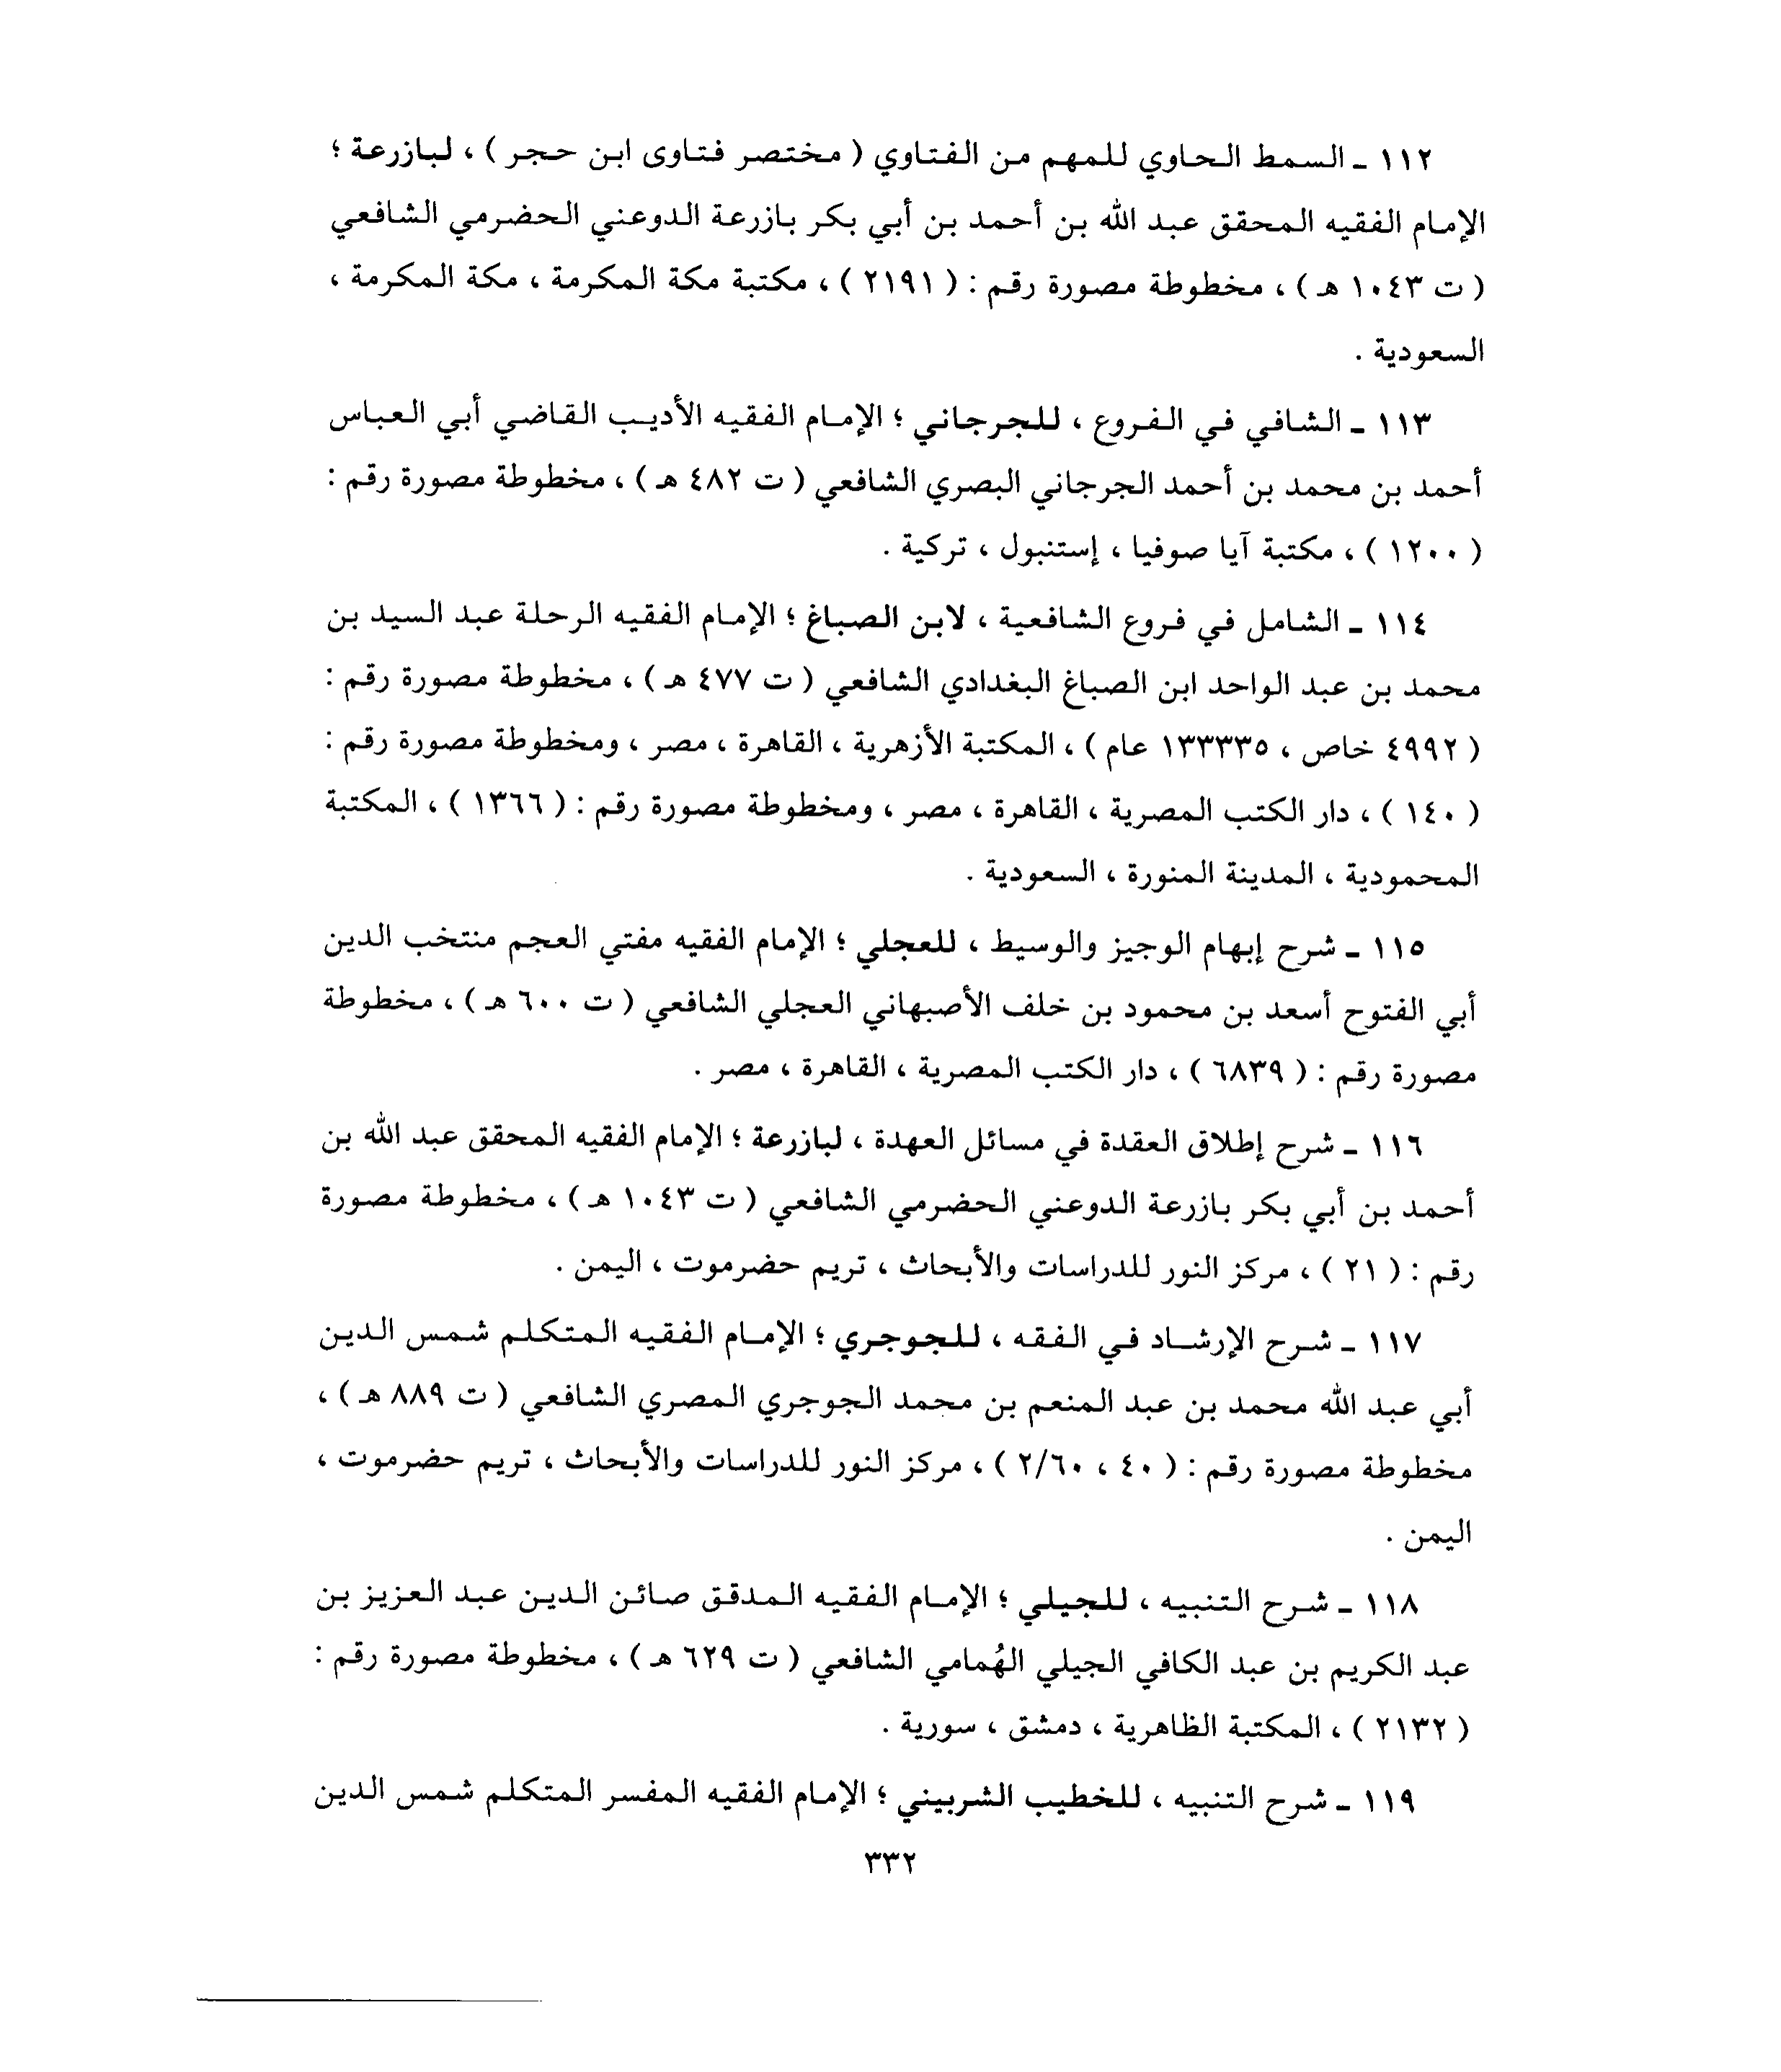 ١١٢ ـ السمط الحاوي للمهم من الفتاوي ( مختصر فتاوى ابن حجر ) ، لبازرعة ؛
الإمام الفقيه المحقق عبد الله بن أحمد بن أبي بكر بازرعة الدوعني الحضرمي الشافعي
( ت ١٠٤٣ هـ ) ، مخطوطة مصورة رقم : ( ٢١٩١ ) ، مكتبة مكة المكرمة ، مكة المكرمة ،
السعودية .
١١٣ ـ الشافي في الفروع ، للجرجاني ؛ الإمام الفقيه الأديب القاضي أبي العباس
أحمد بن محمد بن أحمد الجرجاني البصري الشافعي ( ت ٤٨٢ هـ ) ، مخطوطة مصورة رقم :
( ١٢٠٠ ) ، مكتبة آيا صوفيا ، إستنبول ، تركية .
١١٤ ـ الشامل في فروع الشافعية ، لابن الصباغ ؛ الإمام الفقيه الرحلة عبد السيد بن
محمد بن عبد الواحد ابن الصباغ البغدادي الشافعي ( ت ٤٧٧ هـ ) ، مخطوطة مصورة رقم :
( ٤٩٩٢ خاص ، ١٣٣٣٣٥ عام ) ، المكتبة الأزهرية ، القاهرة ، مصر ، ومخطوطة مصورة رقم :
( ١٤٠ ) ، دار الكتب المصرية ، القاهرة ، مصر ، ومخطوطة مصورة رقم : ( ١٣٦٦ ) ، المكتبة
المحمودية ، المدينة المنورة ، السعودية .
١١٥ ـ شرح إبهام الوجيز والوسيط ، للعجلي ؛ الإمام الفقيه مفتي العجم منتخب الدين
أبي الفتوح أسعد بن محمود بن خلف الأصبهاني العجلي الشافعي ( ت ٦٠٠ هـ ) ، مخطوطة
مصورة رقم : ( ٦٨٣٩ ) ، دار الكتب المصرية ، القاهرة ، مصر .
١١٦ ـ شرح إطلاق العقدة في مسائل العهدة ، لبازرعة ؛ الإمام الفقيه المحقق عبد الله بن
أحمد بن أبي بكر بازرعة الدوعني الحضرمي الشافعي ( ت ١٠٤٣ هـ ) ، مخطوطة مصورة
رقم : ( ٢١ ) ، مركز النور للدراسات والأبحاث ، تريم حضرموت ، اليمن .
١١٧ ـ شرح الإرشاد في الفقه ، للجوجري ؛ الإمام الفقيه المتكلم شمس الدين
أبي عبد الله محمد بن عبد المنعم بن محمد الجوجري المصري الشافعي ( ت ٨٨٩ هـ ) ،
مخطوطة مصورة رقم : ( ٤٠ ، ٢/٦٠ ) ، مركز النور للدراسات والأبحاث ، تريم حضرموت ،
اليمن .
١١٨ ـ شرح التنبيه ، للجيلي ؛ الإمام الفقيه المدقق صائن الدين عبد العزيز بن
عبد الكريم بن عبد الكافي الجيلي الهُمامي الشافعي ( ت ٦٢٩ هـ ) ، مخطوطة مصورة رقم :
( ٢١٣٢ ) ، المكتبة الظاهرية ، دمشق ، سورية .
١١٩ ـ شرح التنبيه ، للخطيب الشربيني ؛ الإمام الفقيه المفسر المتكلم شمس الدين
٣٣٢